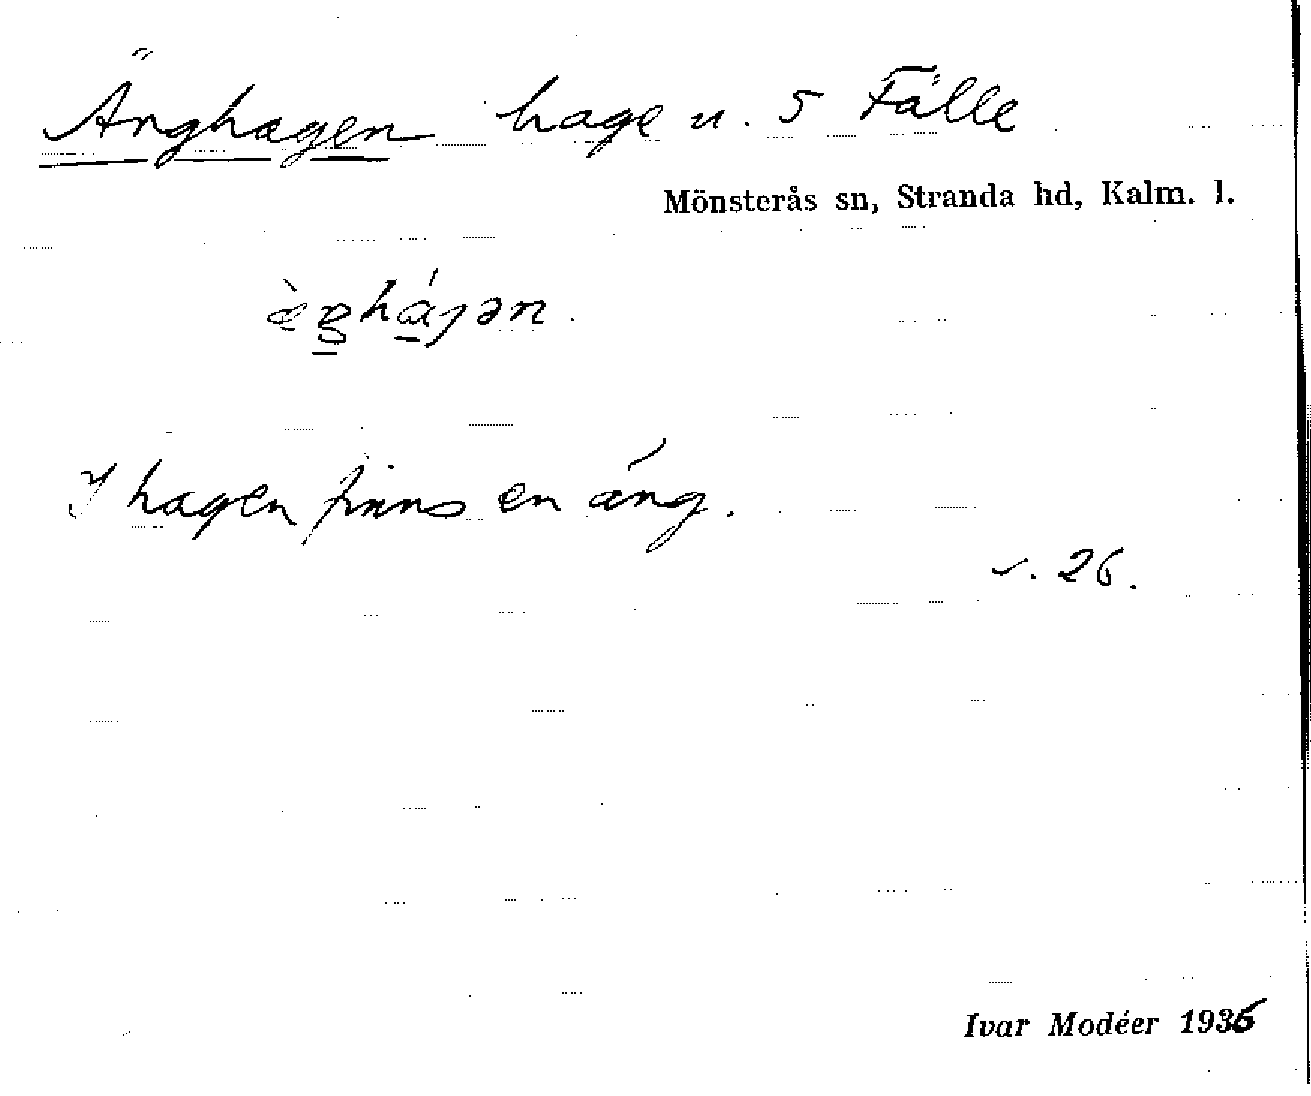 Änghagen hage u. 5 Fälle
Mönsterås sn, Stranda hd, Kalm. l.
I hagen finns en äng.
s. 26.
Ivar Modéer 1936